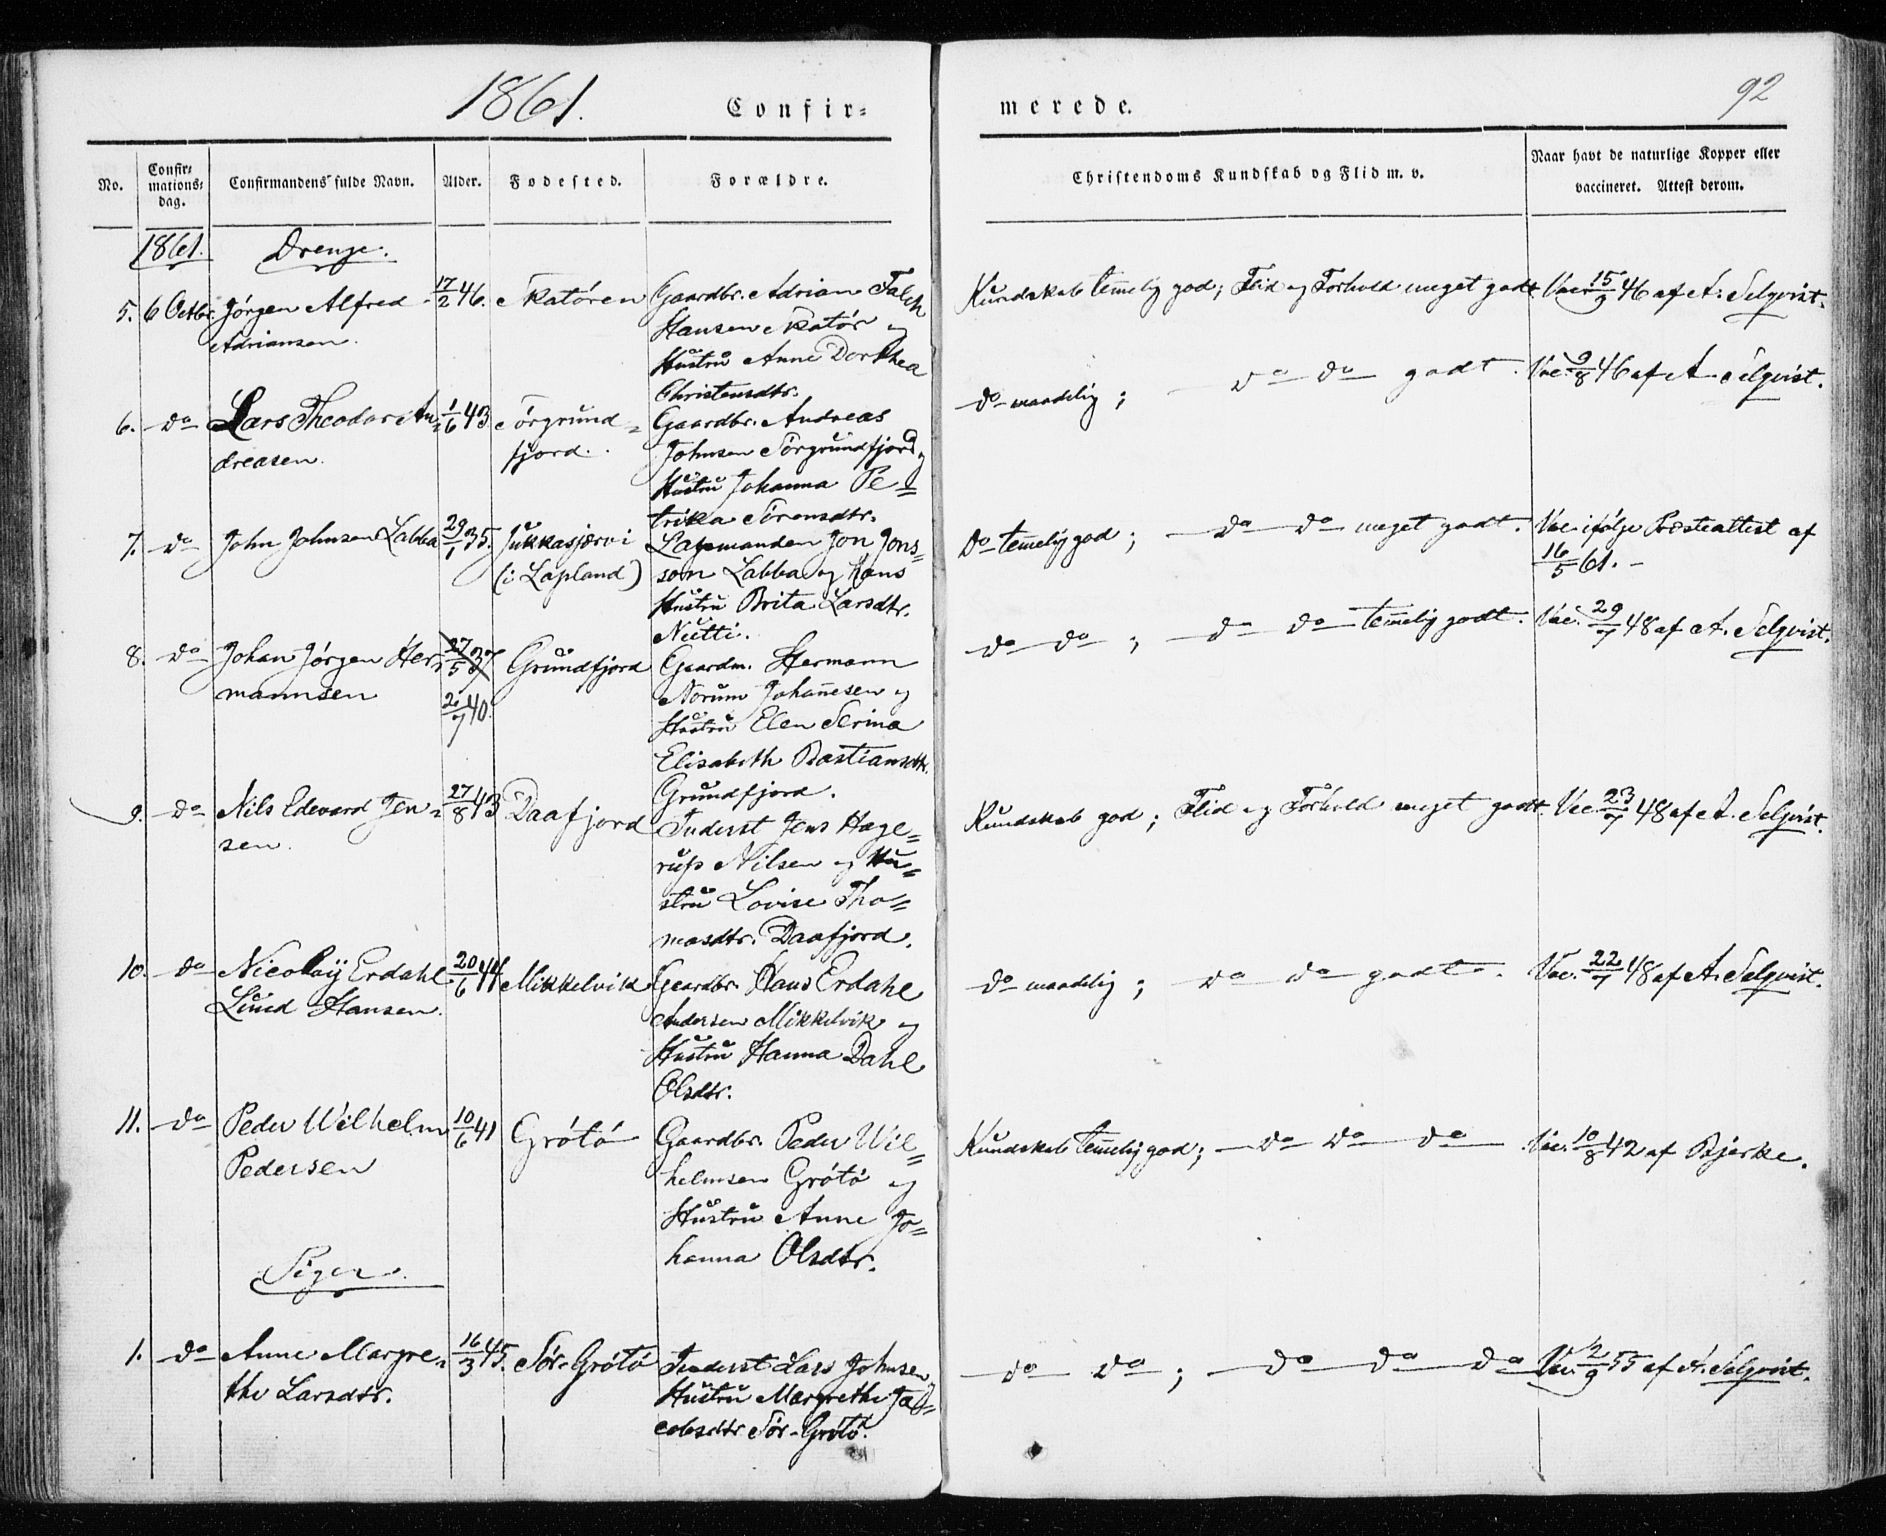 1861. Confir= merede. 92
No. Confir= mations= dag. Confirmandens fulde Navn. Alder. Fødested. Forældre. Christendoms Kundskab og Flid m. v. Naar havt de naturlige Kopper eller vaccineret. Attest derom.
1861. Drenge.
5. 6 Octbr. Jørgen Alfred 17/2 46. Skatøren Gaardbr. Adrian Falch Kundskab temelig god; Flid og Forhold meget godt. Vac. 15/9 46 af A. Selqvist.
Adriansen. Hansen Skatør og
Hustru Anne Dorthea
Christensdtr.
6. do Lars Theodor An= 1/6 43 Sørgrund= Gaardbr. Andreas do maadelig; do do godt. Vac. 9/8 46 af A. Selqvist.
dreasen. fjord. Johnsen Sørgrundfjord og
Hustru Johanna Pe=
trikka Sørensdtr.
7. do John Johnsen Labba 29/1 35. Jukkasjærvi Lapmanden Jon Jons= do temelig god; do do meget godt. Vac. ifølge Præsteattest af
(i Lapland) son Labba og hans 16/5 61.
Hustru Brita Larsdtr.
Nutti.
8. do Johan Jørgen Her= 27/5 37 Grundfjord Gaardm. Hermann do do; do do temelig godt. Vac. 29/7 48 af A. Selqvist.
mannsen 2/7 40. Norum Johannesen og
Hustru Elen Serina
Elisabeth Bastiansdtr.
Grundfjord.
9. do Nils Edevard Jen= 27/8 43 Daafjord Inderst Jens Hage= Kundskab god; Flid og Forhold meget godt. Vac. 23/7 48 af A. Selqvist.
sen. rup Nilsen og Hu=
stru Lovise Tho=
masdtr. Daafjord.
10. do Nicolay Erdahl 20/6 44 Mikkelvik Gaardbr. Hans Erdahl do maadelig; do do godt. Vac. 22/7 48 af A. Selqvist.
Lund Hansen. Andersen Mikkelvik og
Hustru Hanna Dahl
Olsdtr.
11. do Peder Wilhelm 10/6 41 Grøtø Gaardbr. Peder Wil= Kundskab temelig god; do do do Vac. 10/8 42 af Bjerke.
Pedersen helmsen Grøtø og
Hustru Anne Jo=
hanna Olsdtr.
Piger.
1. do Anne Margre= 16/3 45. Sør-Grøtø Inderst Lars Johnsen do do; do do do Vac. 2/9 55 af A. Selqvist.
the Larsdtr. Hustru Margrethe Ja=
cobsdtr Sør-Grøtø.